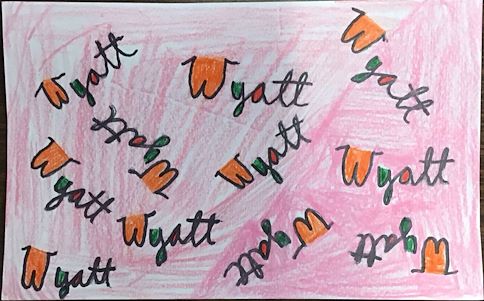 Wyatt
Wyatt
Wyatt
Wyatt
Wyatt
Wyatt
Wyatt
Wyatt
Wyatt
Wyatt
Wyatt